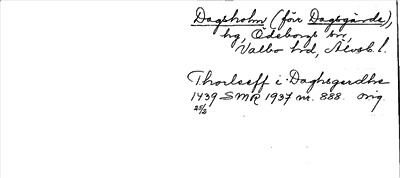 Dagsholm (förr Dagsgärde),
hg, Ödeborgs sn,
Valbo hd, Älvsb. l.
Thorleeff i Daghsgerdhe
1439 SMR 1937 nr. 888. orig.
25/2